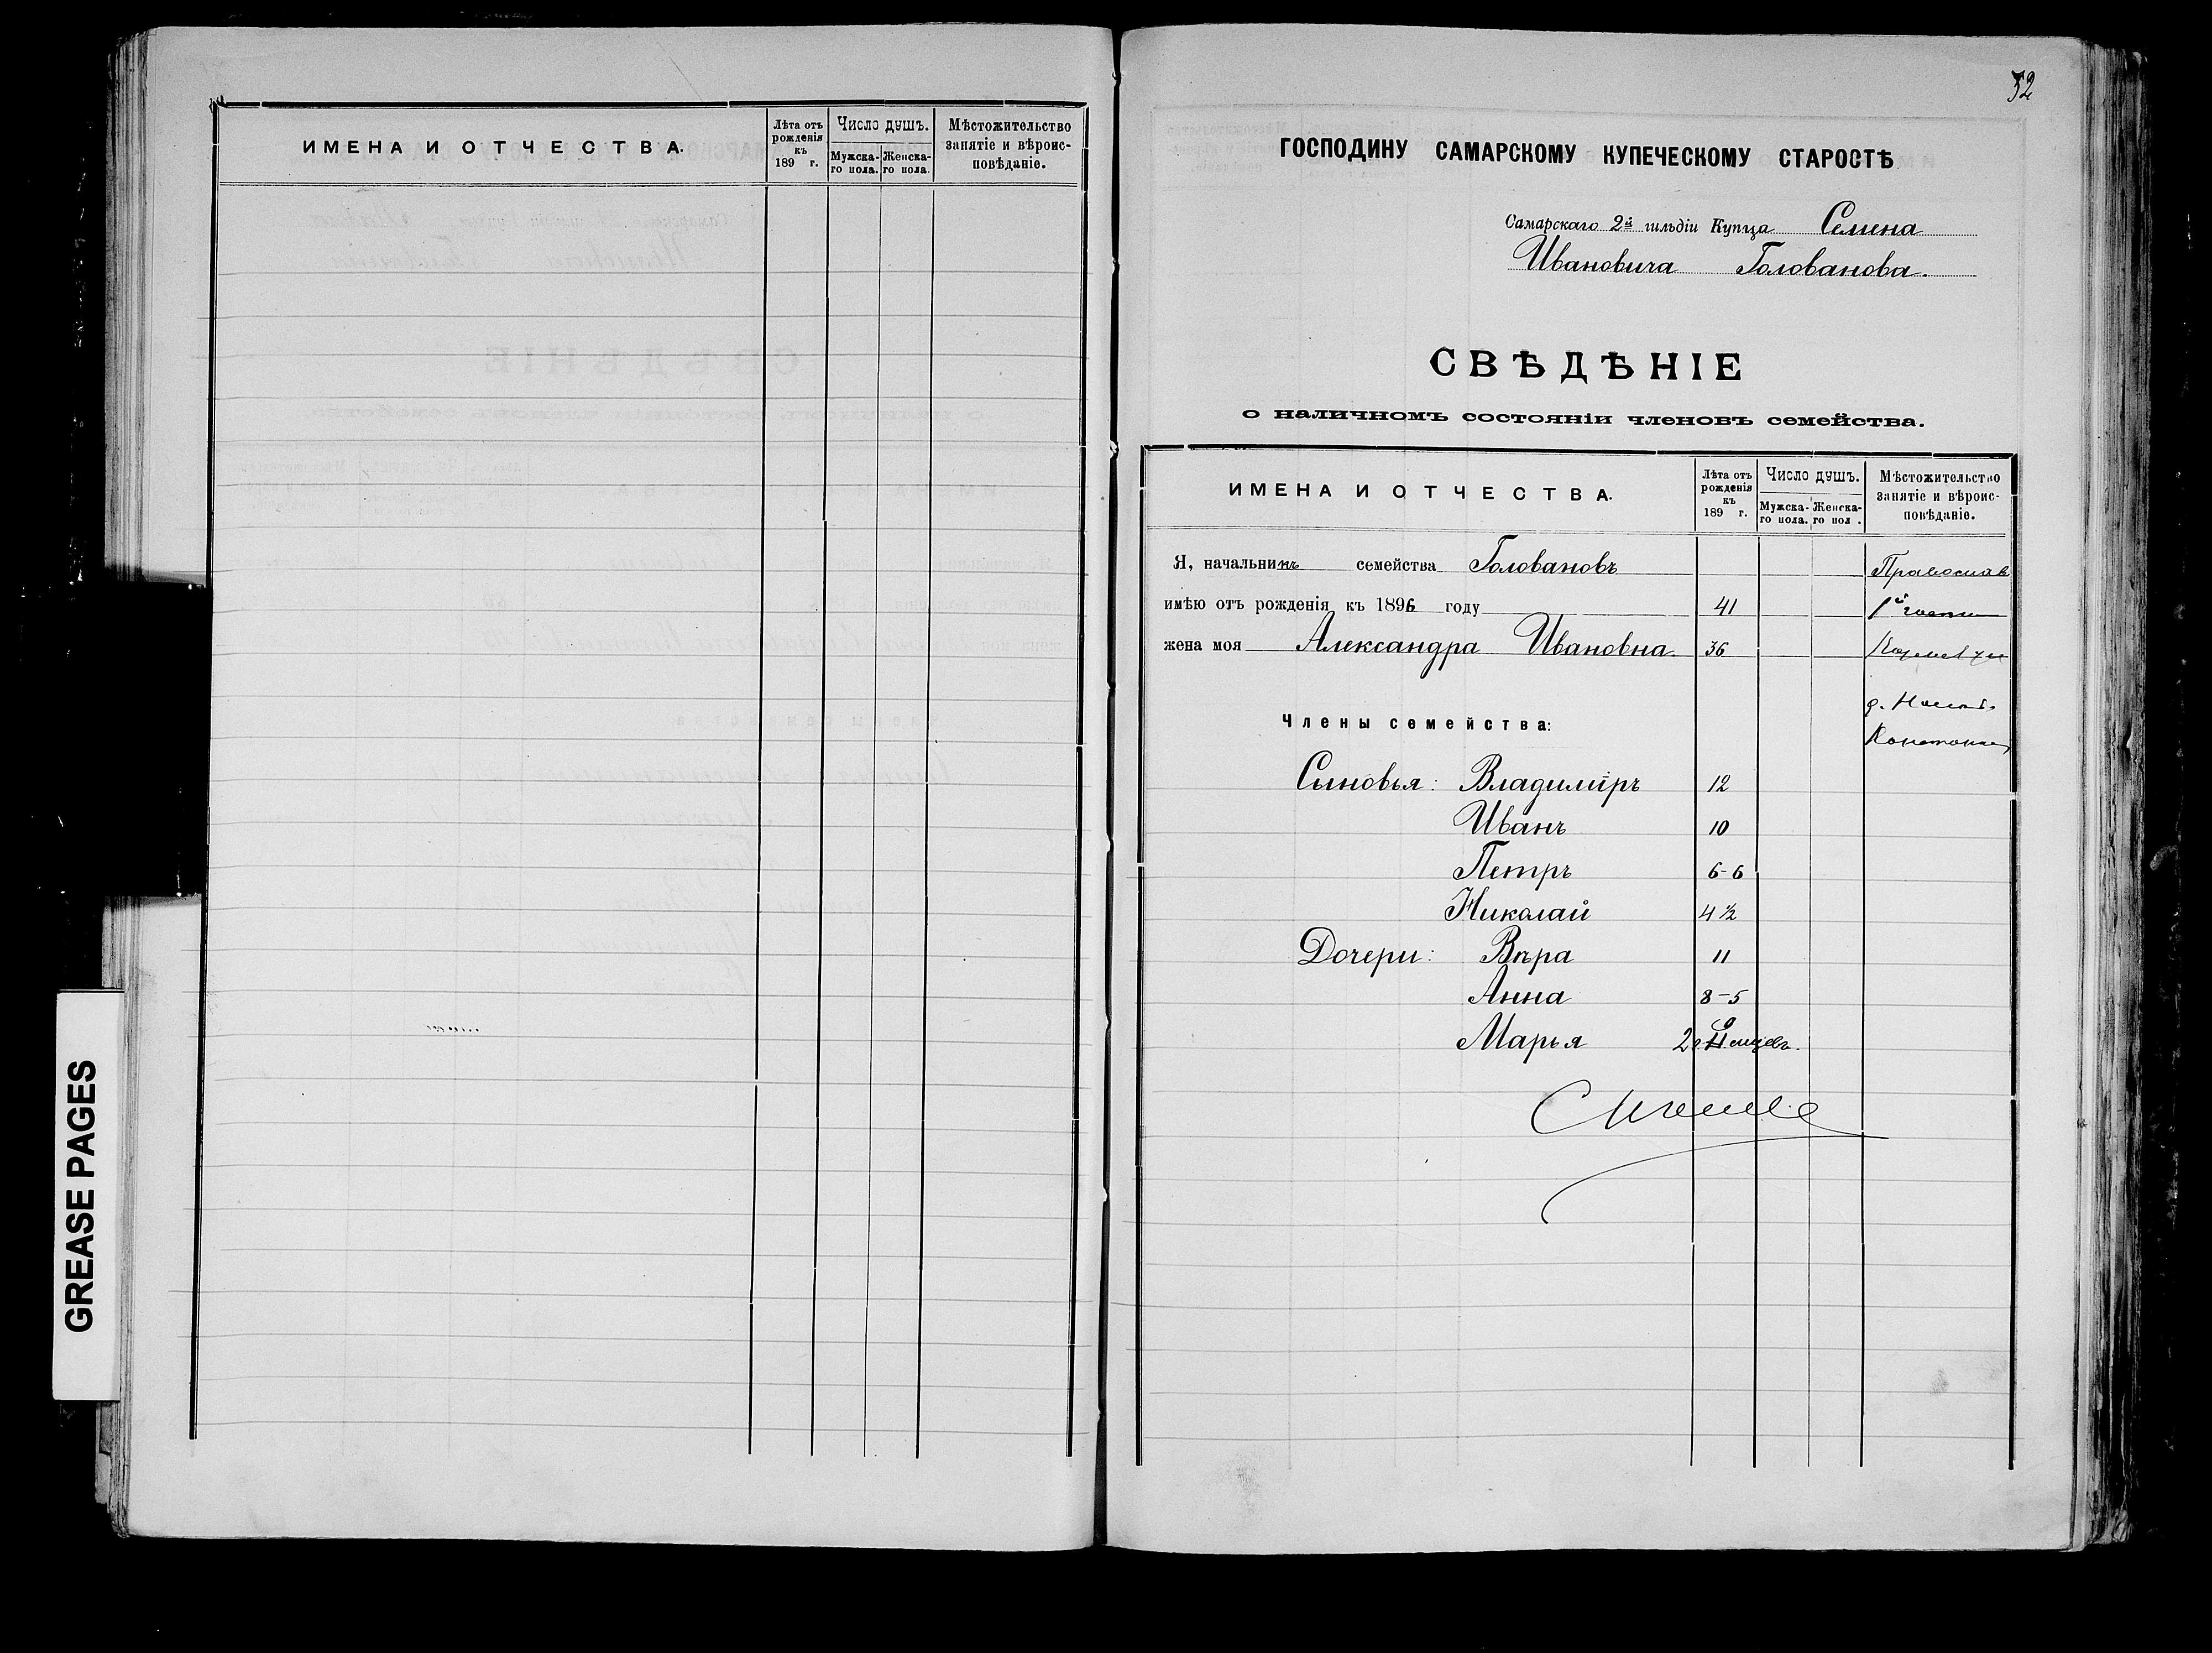 ИМЕНА И ОТЧЕСТВА.
Лѣта отъ рожденія къ 189 г.
Число душъ.
Мужска-го пола.
Женска-го пола.
Мѣстожительство занятіе и вѣроис-повѣданіе.
GREASE PAGES
52
ГОСПОДИНУ САМАРСКОМУ КУПЕЧЕСКОМУ СТАРОСТѢ
Самарскаго 2й гильдіи Купца Семена
Ивановича Голованова.
СВѢДѢНІЕ
о наличномъ состояніи членовъ семейства.
ИМЕНА И ОТЧЕСТВА.
Лѣта отъ рожденія къ 189 г.
Число душъ.
Мужска-го пола.
Женска-го пол .
Мѣстожительство занятіе и вѣроис-повѣданіе.
Я, начальникъ семейства Головановъ Православ
имѣю отъ рожденія къ 1896 году 41 1й части
жена моя Александра Ивановна 36
д.
Члены семейства:
Сыновья: Владиміръ 12
Иванъ 10
Петръ 6-6
Николай 4 ½
Дочери: Вѣра 11
Анна 8-5
Марья 2 г. мцев.